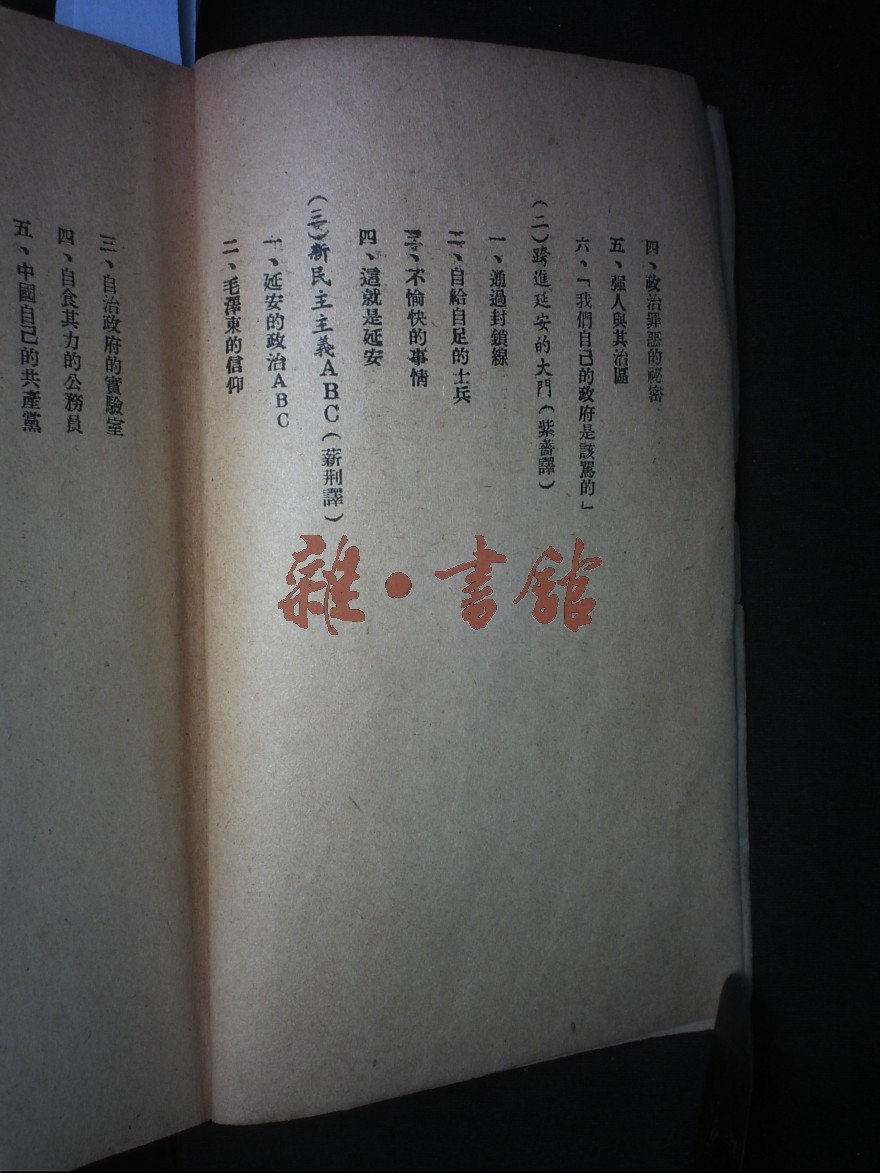 四、政治罪惡的祕密
五、强人與其治區
六、「我們自己的政府是該罵的」
(二)跨進延安的大門(紫薔譯)
一、通過封鎖線
二、自給自足的士兵
三、不愉快的事情
四、這就是延安
(三)新民主主義ABC(薪荆譯)
一、延安的政治ABC
二、毛澤東的信仰
三、自治政府的實驗室
四、自食其力的公務員
五、中國自己的共產黨
雜·書館